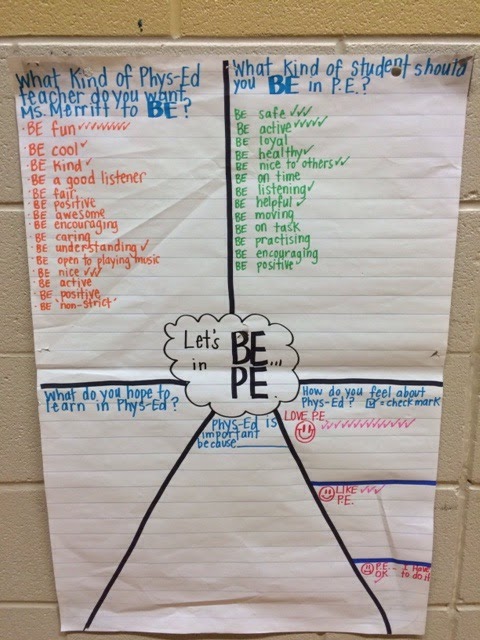 What Kind of Phys-Ed
teacher do you want
Ms. Merritt to BE?
· BE fun ✓✓✓✓✓✓✓✓
· BE cool ✓
· BE kind ✓
· BE a good listener
· BE fair
· BE positive
· BE awesome
· BE encouraging
· BE caring
· BE understanding ✓
· BE open to playing music
· BE nice ✓✓✓
· BE active
· BE positive
· BE "non-strict"
What Kind of student should
you BE in P.E.?
BE safe ✓✓✓
BE active ✓✓✓✓✓
BE loyal
BE healthy ✓
BE nice to others ✓✓
BE on time
BE listening ✓
BE helpful
BE moving
BE on task
BE practising
BE encouraging
BE positive
Let's BE...
in PE.
What do you hope to
learn in Phys-Ed?
Phys-Ed is
important
because
How do you feel about
Phys-Ed? ☑ = checkmark
LOVE P.E.
LIKE ✓✓✓
P.E.
P.E. - I have
OK to do it